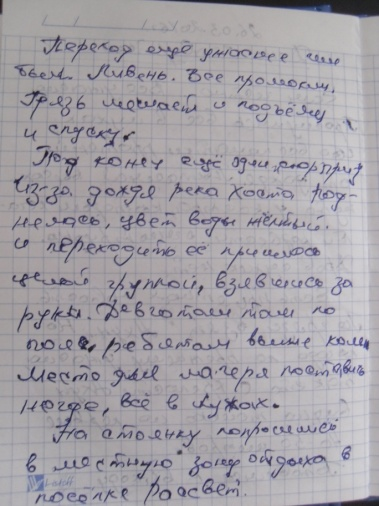 Переход ещё ужаснее чем
был. Ливень. Все промокли,
Грязь мешает и подъёму
и спуску.
Под конец ещё один сюрприз
Из-за дождя река Хоста под-
нялась, цвет воды жёлтый.
и переходить её пришлось
целой группой, взявшись за
руки. Девчатам там по
пояс, ребятам выше колен
Место для лагеря поставить
негде, всё в лужах.
На стоянку попросились
в местную зону отдыха в
посёлке Рассвет.